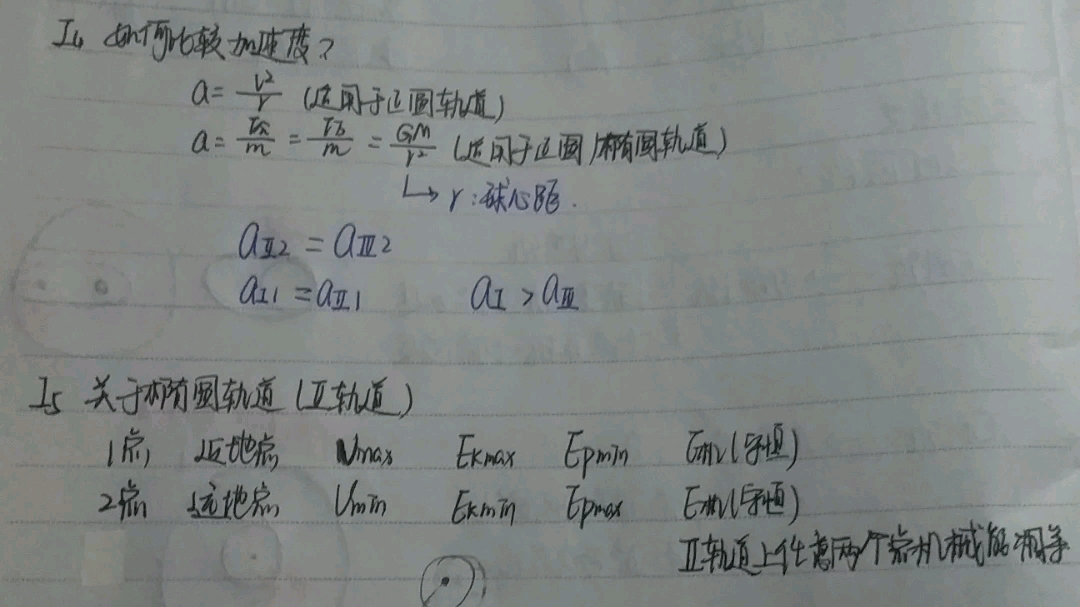 I₄ 如何比较加速度?
a = v²/r (适用于正圆轨道)
a = F合/m = F万/m = GM/r² (适用于正圆/椭圆轨道)
↳ r:球心距.
aⅡ2 = aⅢ2
aⅠ1 = aⅡ1 aⅠ > aⅢ
I₅ 关于椭圆轨道 (Ⅱ轨道)
1点 近地点 Vmax Ekmax Epmin E机(守恒)
2点 远地点 Vmin Ekmin Epmax E机(守恒)
Ⅱ轨道上任意两个点机械能相等